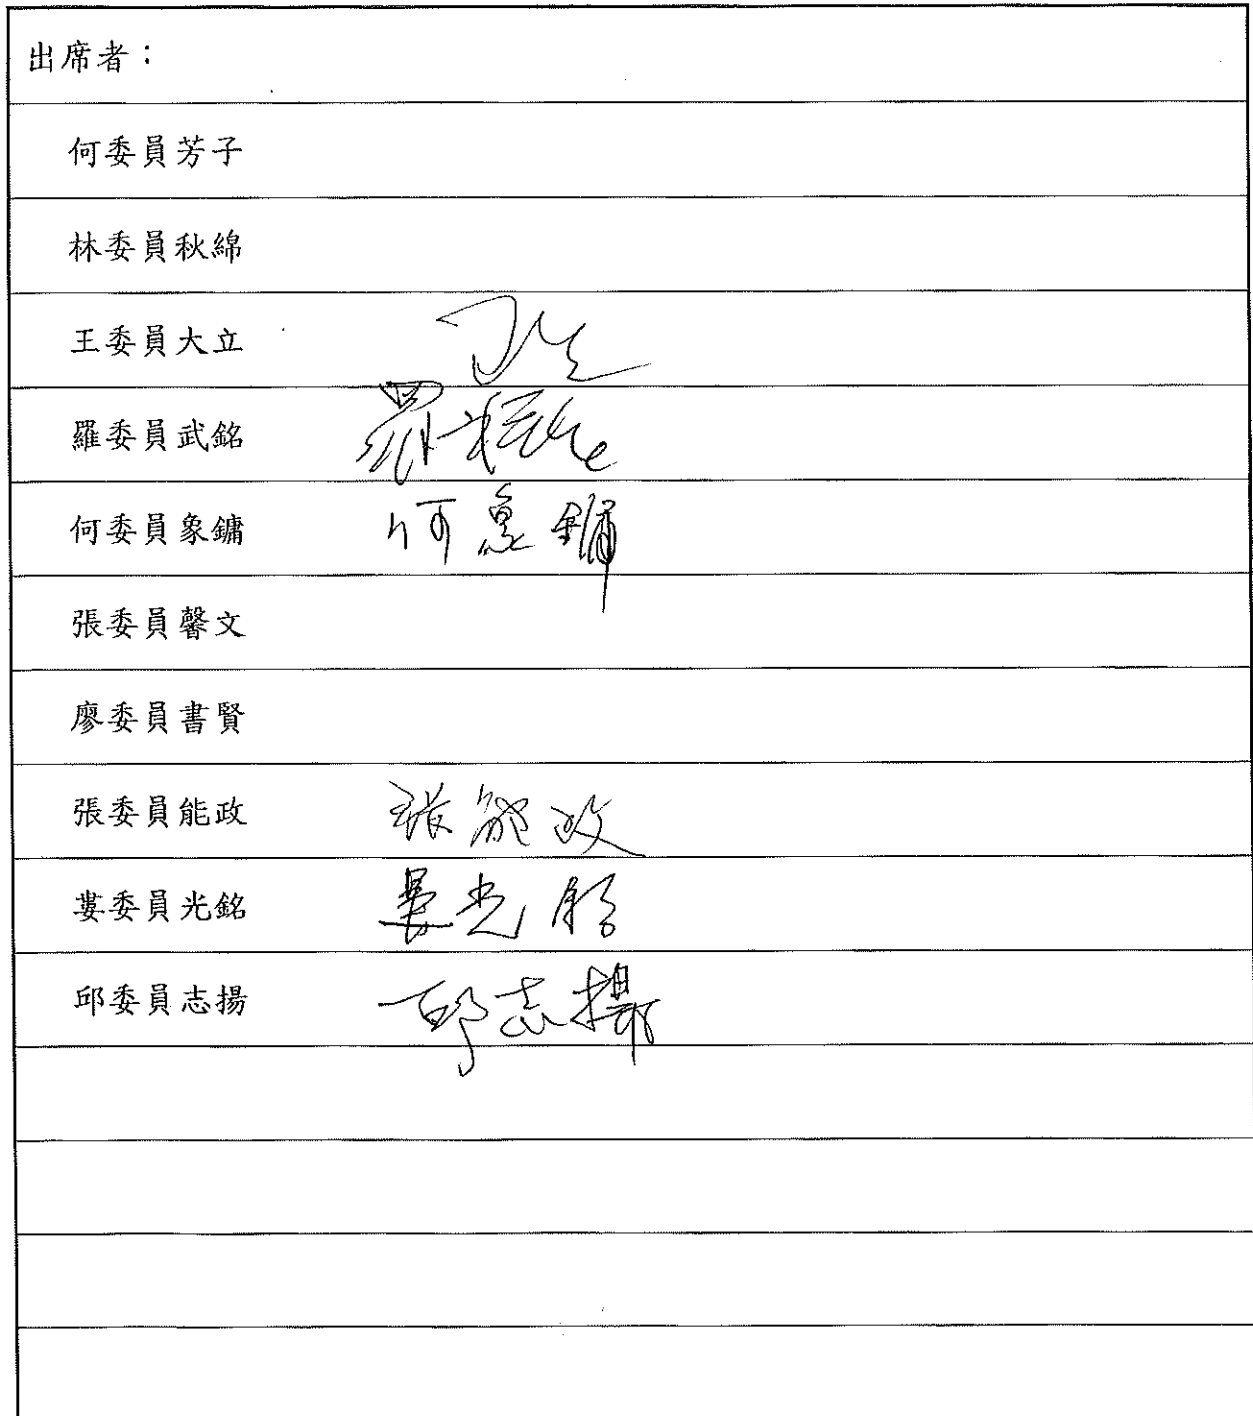 出席者：
何委員芳子
林委員秋綿
王委員大立
羅委員武銘
何委員象鏞 何象鏞
張委員馨文
廖委員書賢
張委員能政 張能政
婁委員光銘 婁光銘
邱委員志揚 邱志揚